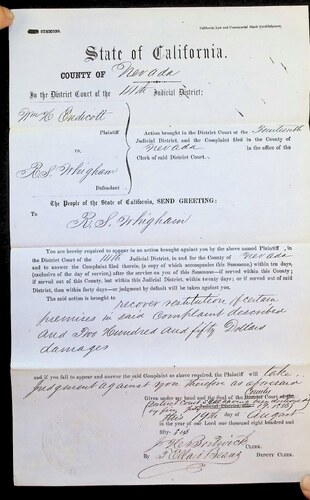 SUMMONS.
State of California.
COUNTY OF Nevada
In the District Court of the 14th Judicial District:
Wm H. Endicott
Plaintiff
vs.
R. S. Whigham
Defendant
Action brought in the District Court of the Fourteenth
Judicial District, and the Complaint filed in the County of
Nevada in the office of the
Clerk of said District Court.
The People of the State of California, SEND GREETING:
To R. S. Whigham
You are hereby required to appear in an action brought against you by the above named Plaintiff, in
the District Court of the 14th Judicial District, in and for the County of Nevada
and to answer the Complaint filed therein, (a copy of which accompanies this Summons) within ten days,
(exclusive of the day of service,) after the service on you of this Summons—if served within this County;
if served out of this County, but within this Judicial District, within twenty days; or if served out of said
District, then within forty days—or judgment by default will be taken against you.
The said action is brought to recover restitution of certain
premises in said Complaint described
and Two Hundred and fifty Dollars
damages
and if you fail to appear and answer the said Complaint as above required, the Plaintiff will take
judgment against you therefor as aforesaid
Given under my hand and the Seal of the District Court
County
this 19th day of August
in the year of our Lord one thousand eight hundred and
fifty-
CLERK.
By DEPUTY CLERK.